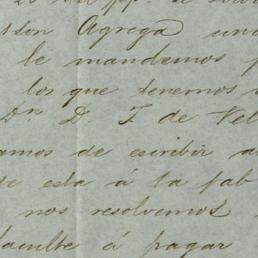 Agrega un
le mandemos p
los que tenemos
Dn D. F de Vel
amos de escribir a
esta á la fab
nos resolvemos
faculte á pagar